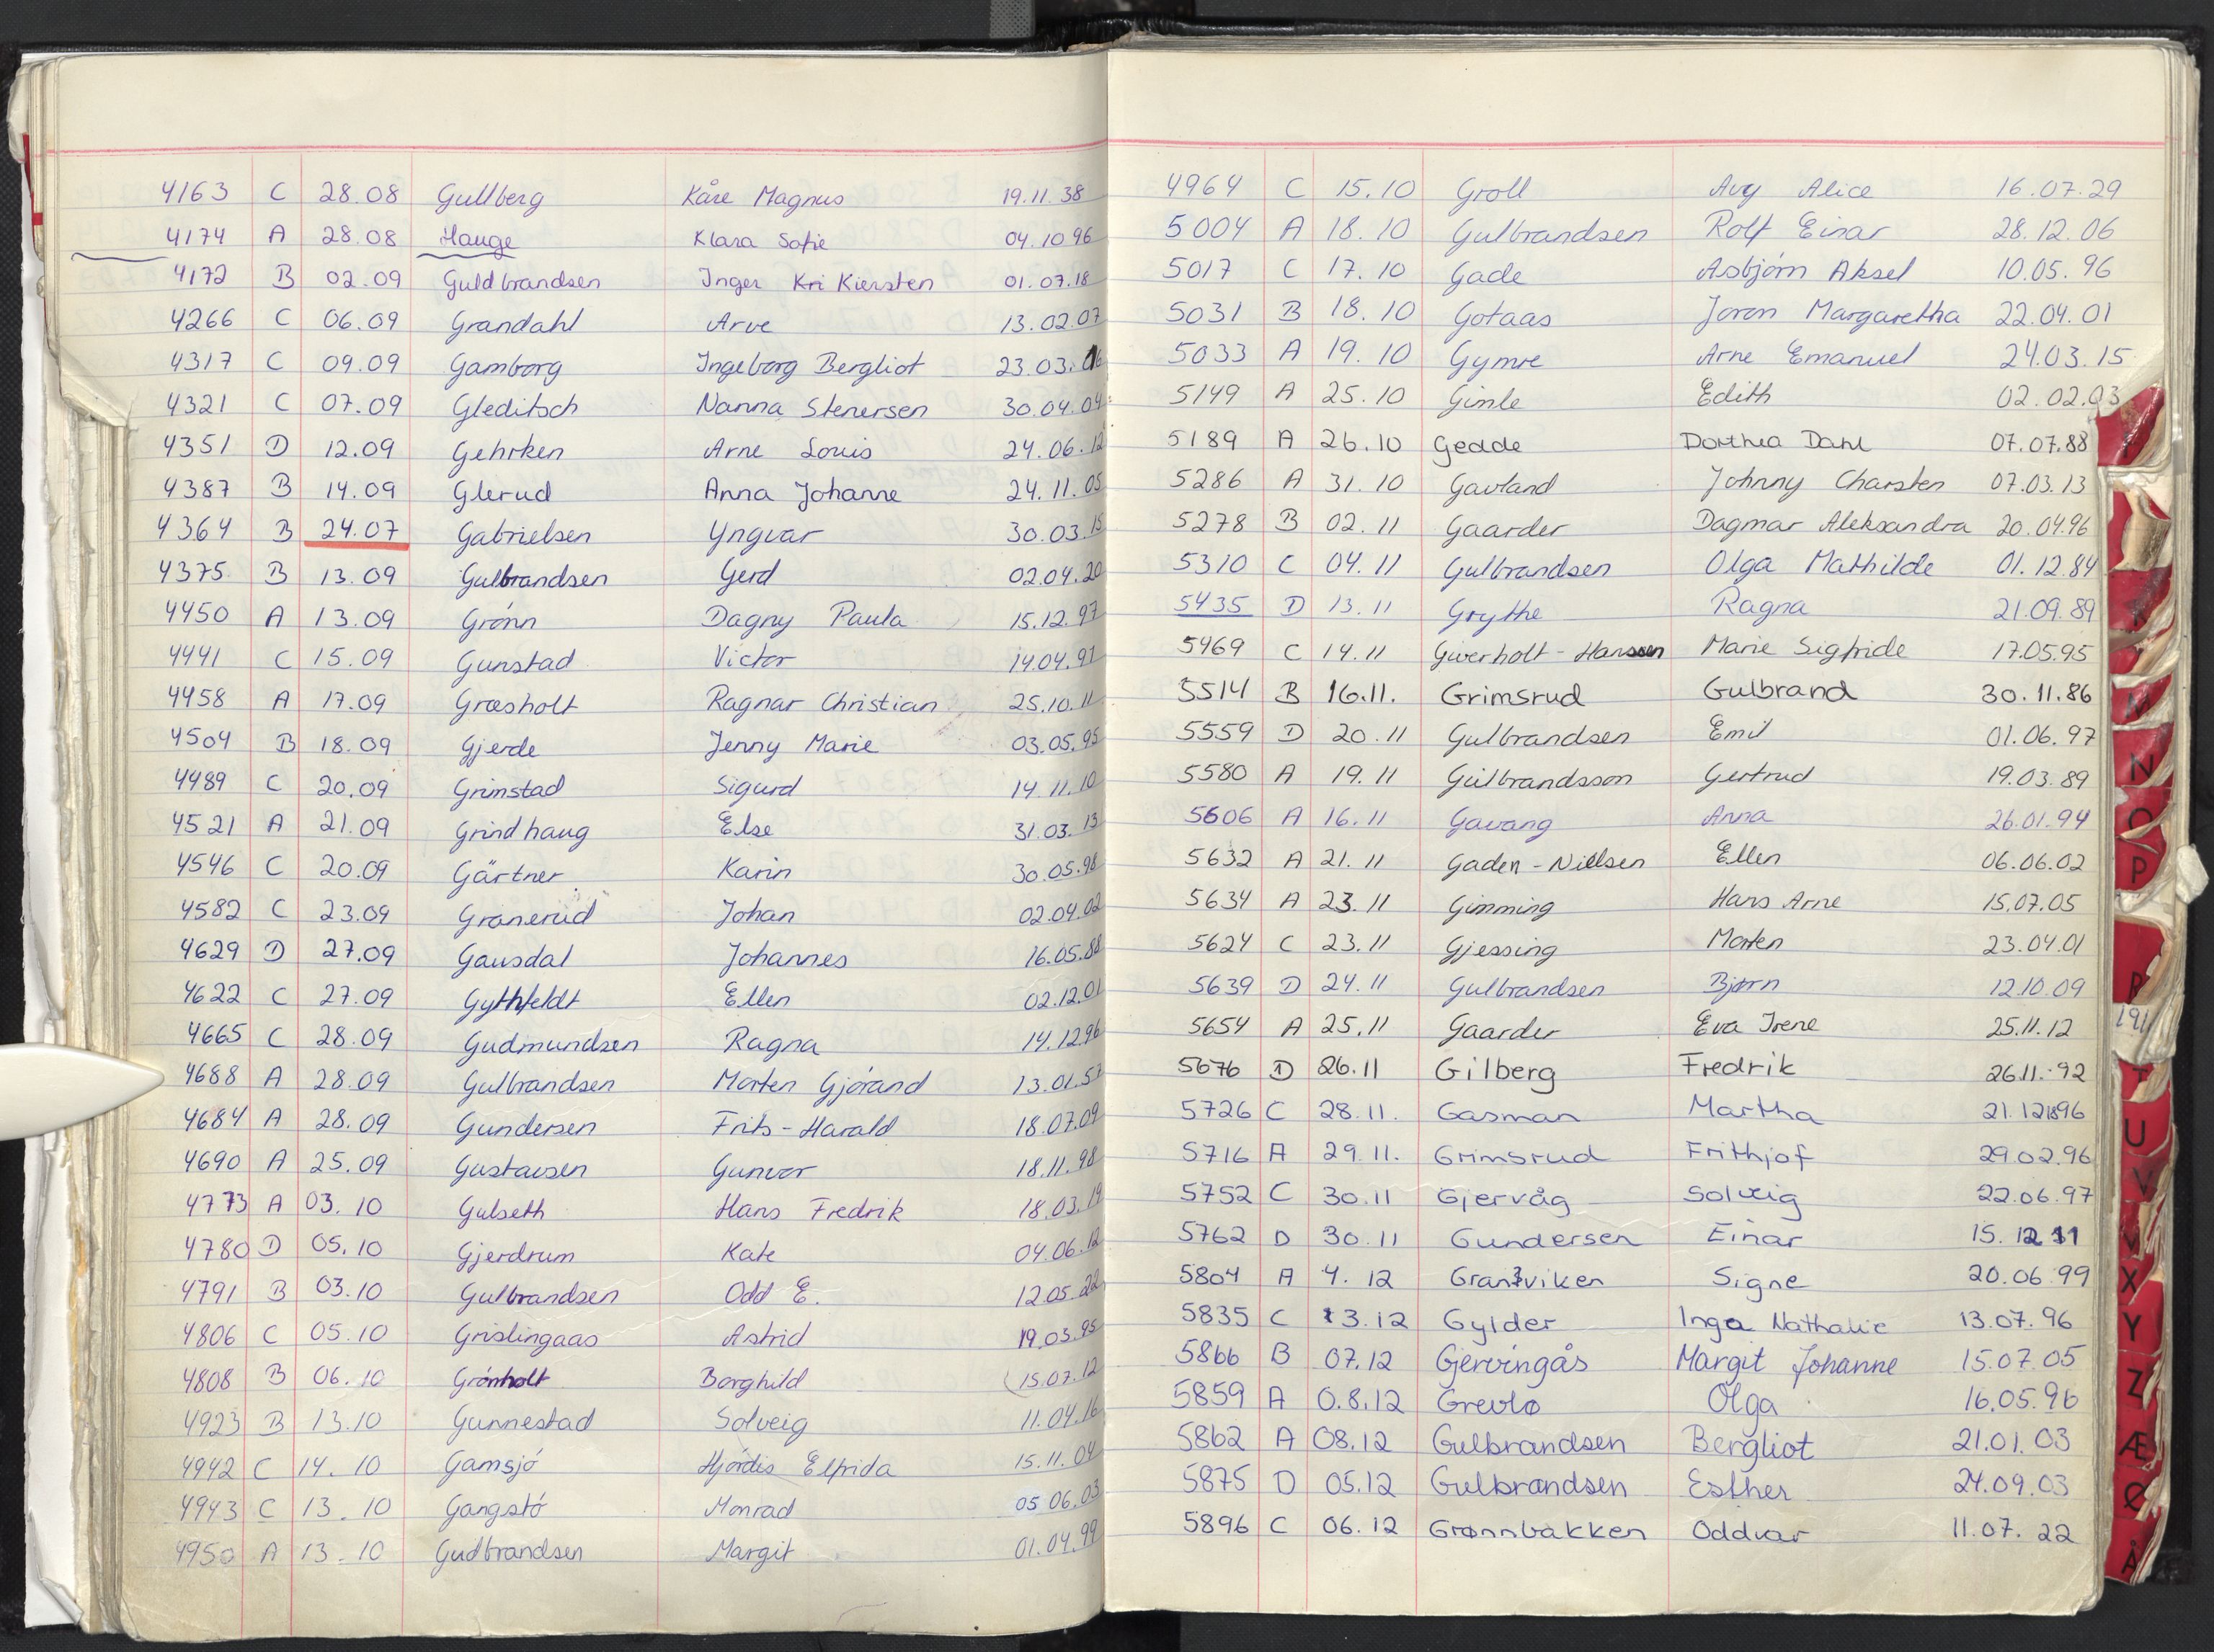 4163 C 28.08 Gullberg Kåre Magnus 19.11.38
4174 A 28.08 Hauge Klara Sofie 04.10.96
4172 B 02.09 Guldbrandsen Inger Kri Kiersten 01.07.18
4266 C 06.09 Grandahl Arve 13.02.07
4317 C 09.09 Gamborg Ingeborg Bergliot 23.03.16
4321 C 07.09 Gleditsch Nanna Stenersen 30.04.04
4351 D 12.09 Gehrken Arne Louis 24.06.12
4387 B 14.09 Glerud Anna Johanne 24.11.05
4364 B 24.07 Gabrielsen Yngvar 30.03.15
4375 B 13.09 Gulbrandsen Gerd 02.04.20
4450 A 13.09 Grønn Dagny Paula 15.12.97
4441 C 15.09 Gunstad Victor 14.04.91
4458 A 17.09 Græsholt Ragnar Christian 25.10.11
4504 B 18.09 Gjerde Jenny Marie 03.05.95
4489 C 20.09 Grimstad Sigurd 14.11.10
4521 A 21.09 Grindhaug Else 31.03.13
4546 C 20.09 Gärtner Karin 30.05.98
4582 C 23.09 Granerud Johan 02.04.02
4629 D 27.09 Gausdal Johannes 16.05.88
4622 C 27.09 Gythfeldt Ellen 02.12.01
4665 C 28.09 Gudmundsen Ragna 14.12.96
4688 A 28.09 Gulbrandsen Morten Gjørand 13.01.57
4684 A 28.09 Gundersen Frits-Harald 18.07.09
4690 A 25.09 Gustavsen Gunvor 18.11.98
4773 A 03.10 Gulseth Hans Fredrik 18.03.19
4780 D 05.10 Gjerdrum Kate 04.06.12
4791 B 03.10 Gulbrandsen Odd E. 12.05.22
4806 C 05.10 Grislingaas Astrid 19.03.95
4808 B 06.10 Grønholt Borghild 15.07.12
4923 B 13.10 Gunnestad Solveig 11.04.16
4942 C 14.10 Gamsjø Hjørdis Elfrida 15.11.04
4943 C 13.10 Gangstø Monrad 05.06.03
4950 A 13.10 Gudbrandsen Margit 01.04.99
4964 C 15.10 Groll Auy Alice 16.07.29
5004 A 18.10 Gulbrandsen Rolf Einar 28.12.06
5017 C 17.10 Gade Asbjørn Aksel 10.05.96
5031 B 18.10 Gotaas Joron Margaretha 22.04.01
5033 A 19.10 Gymre Arne Emanuel 24.03.15
5149 A 25.10 Gimle Edith 02.02.03
5189 A 26.10 Gedde Dorthea Dahl 07.07.88
5286 A 31.10 Gavland Johnny Charsten 07.03.13
5278 B 02.11 Gaarder Dagmar Aleksandra 20.04.96
5310 C 04.11 Gulbrandsen Olga Mathilde 01.12.84
5435 D 13.11 Grythe Ragna 21.09.89
5469 C 14.11 Giverholt-Hanssen Marie Sigfride 17.05.95
5514 B 16.11. Grimsrud Gulbrand 30.11.86
5559 D 20.11 Gulbrandsen Emil 01.06.97
5580 A 19.11 Gulbrandsson Gertrud 19.03.89
5606 A 16.11 Gavang Anna 26.01.94
5632 A 21.11 Gaden-Nielsen Ellen 06.06.02
5634 A 23.11 Gimming Hans Arne 15.07.05
5624 C 23.11 Gjessing Morten 23.04.01
5639 D 24.11 Gulbrandsen Bjørn 12.10.09
5654 A 25.11 Gaarder Eva Irene 25.11.12
5676 D 26.11 Gilberg Fredrik 26.11.92
5726 C 28.11. Gasman Martha 21.12.1896
5716 A 29.11. Grimsrud Frithjof 29.02.96
5752 C 30.11 Gjervåg Solveig 22.06.97
5762 D 30.11 Gundersen Einar 15.12.11
5804 A 4.12 Granviken Signe 20.06.99
5835 C 13.12 Gylder Inga Nathalie 13.07.96
5866 B 07.12 Gjervingås Margit Johanne 15.07.05
5859 A 0.8.12 Grevlo Olga 16.05.96
5862 A 08.12 Gulbrandsen Bergliot 21.01.03
5875 D 05.12 Gulbrandsen Esther 24.09.03
5896 C 06.12 Grønnbakken Oddvar 11.07.22
M
N
O
P
R
T
U
V
X
Y
Z
Æ
Ø
Å